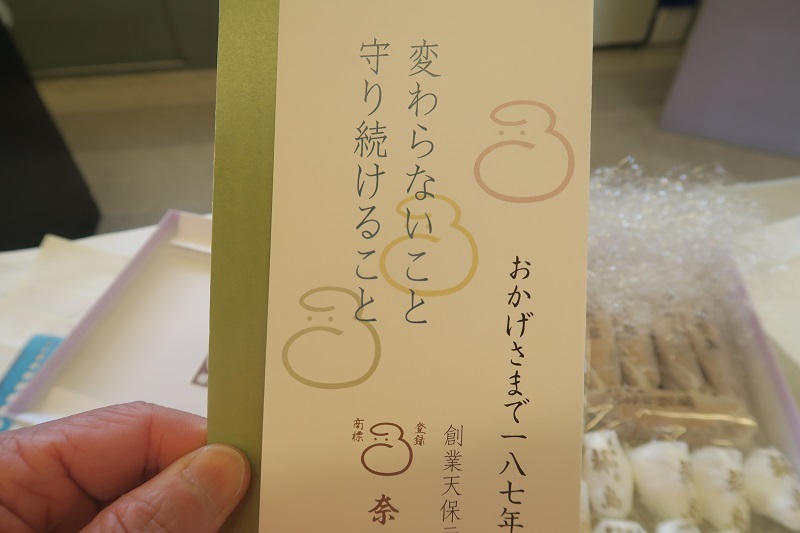 変わらないこと
守り続けること
おかげさまで一八七年
創業天保
登録
商標
奈